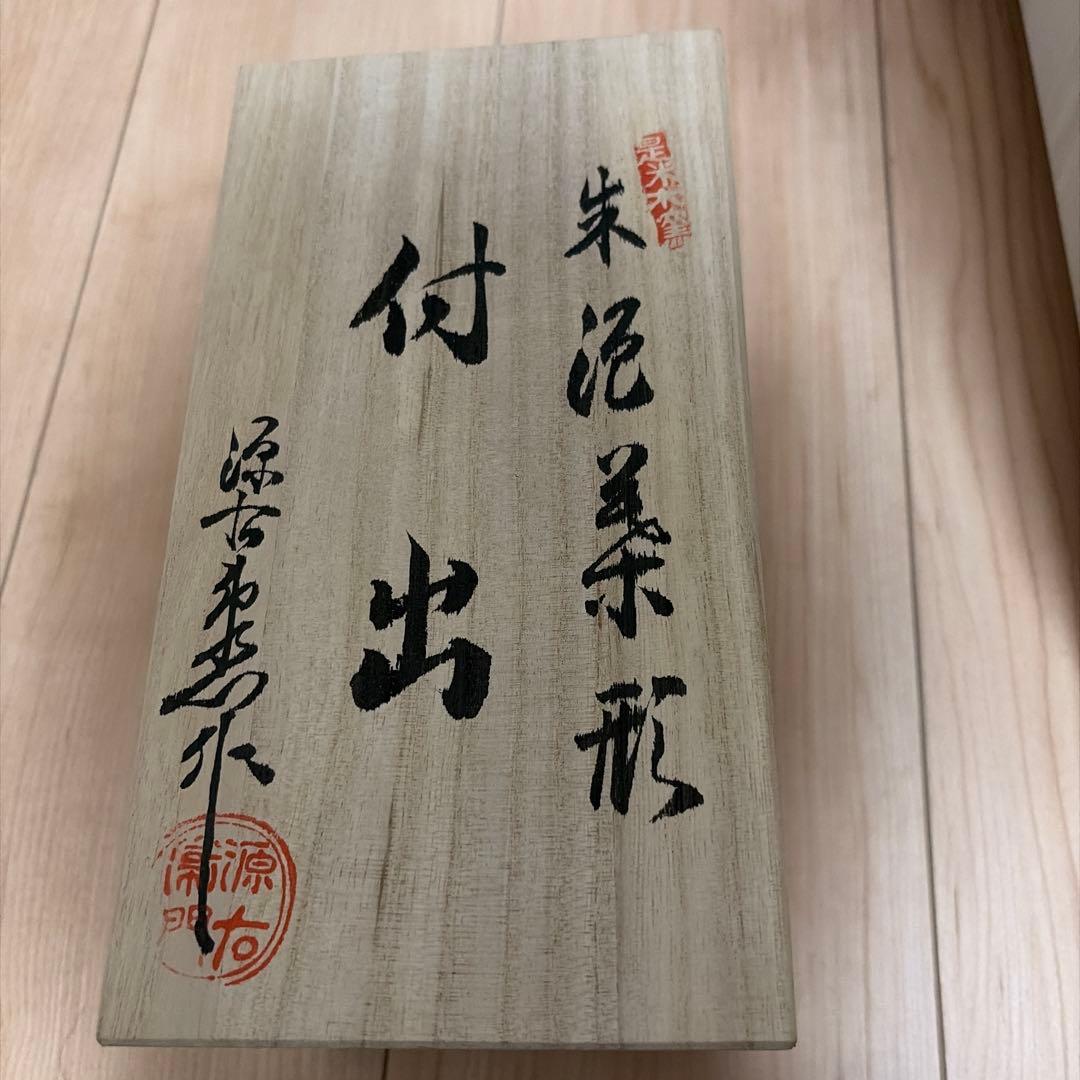 是米木窯
朱泥葉形
付出
源右衛門作
源右衛門